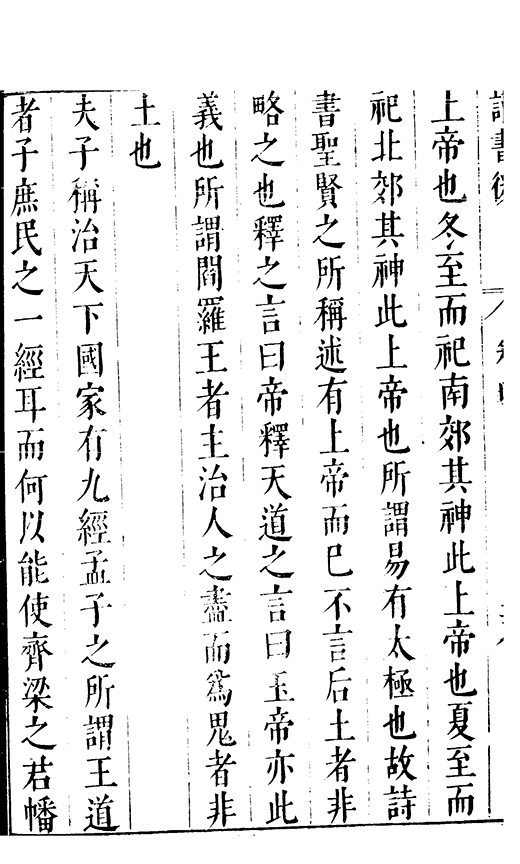 上帝也冬至而祀南郊其神此上帝也夏至而
祀北郊其神此上帝也所謂易有太極也故詩
書聖賢之所稱述有上帝而已不言后土者非
略之也釋之言曰帝釋天道之言曰玉帝亦此
義也所謂閻羅王者主治人之盡而爲鬼者非
土也
夫子稱治天下國家有九經孟子之所謂王道
者子庶民之一經耳而何以能使齊梁之君幡